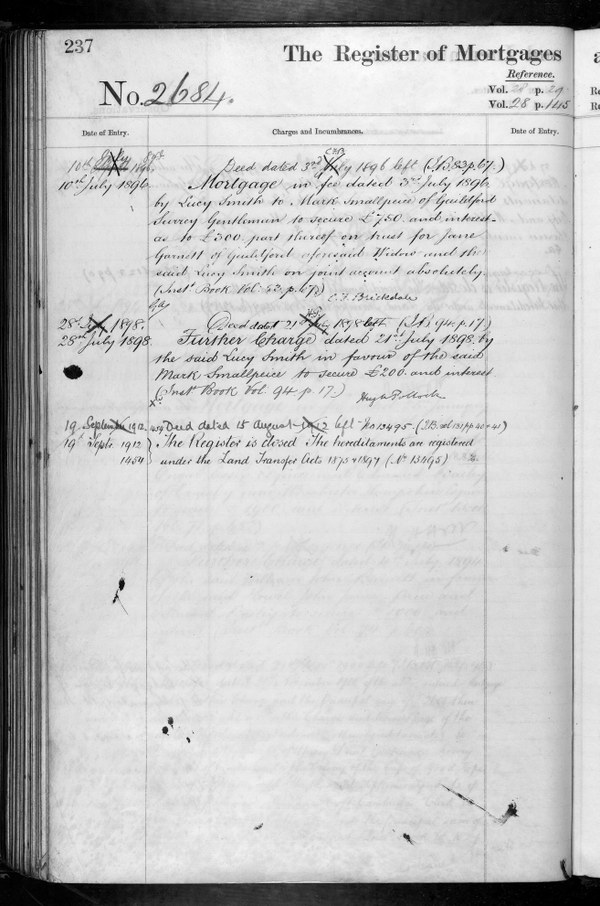 237
The Register of Mortgages
Reference.
No. 2684.
Vol. p. 29
Vol. 28 p. 145
Date of Entry.
Charges and Incumbrances.
Date of Entry.
10th July 1896. Deed dated 3rd July 1896 left (I.B. 83 p. 67.)
10th July 1896. Mortgage in fee dated 3rd July 1896
by Lucy Smith to Mark Smallpeice of Guildford
Surrey Gentleman to secure £750 and interest
as to £300 part thereof on trust for Jane
Garnett of Guildford aforesaid Widow and the
said Lucy Smith on joint account absolutely.
(Inst. Book Vol. 83. p. 67.)
C. F. Brickdale
28th July 1898. Deed dated 21st July 1898 left (I.B. 94 p. 17.)
28th July 1898. Further Charge dated 21st July 1898 by
the said Lucy Smith in favour of the said
Mark Smallpeice to secure £200 and interest
(Inst Book Vol. 94 p. 17.)
Hugh Pollock
19 September 1912. 1454 Deed dated 15 August 1912 left No 13495. (I.B. vol 131 pp 40 + 41)
19th Septr. 1912 The Register is closed The hereditaments are registered
1454 under the Land Transfer Acts 1875 & 1897 (No 13495)